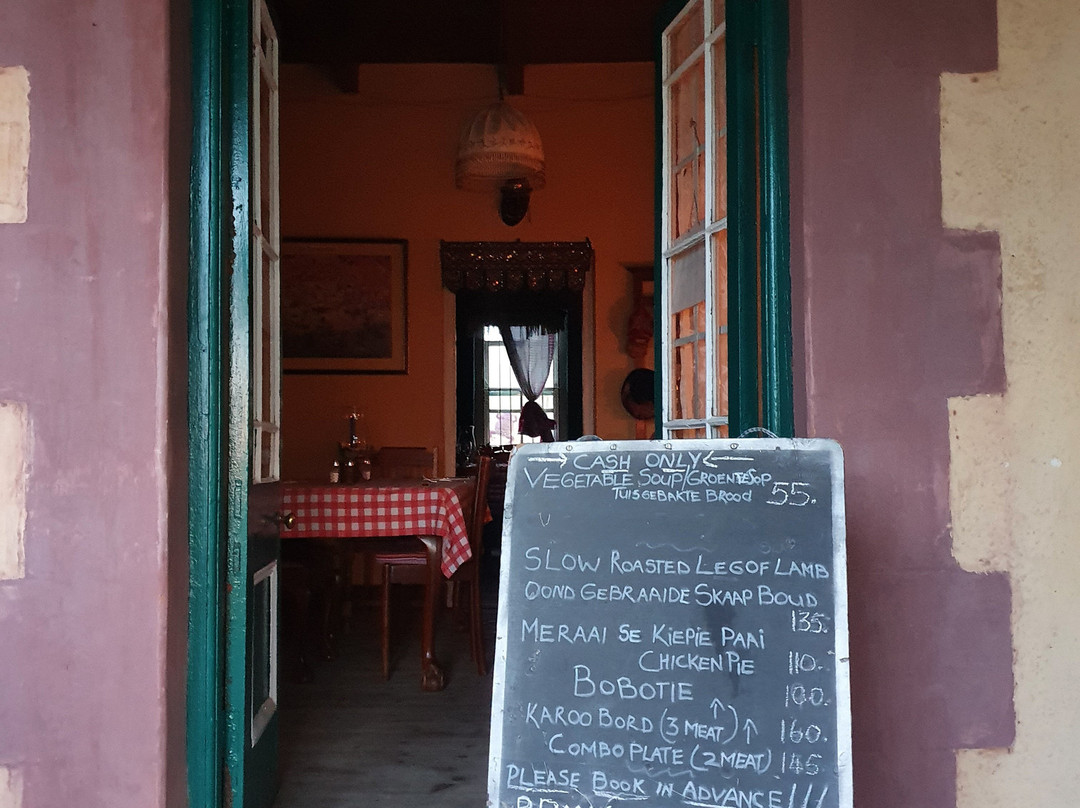 → CASH ONLY ←
VEGETABLE SOUP/GROENTESOP
TUISGEBAKTE BROOD 55.
SLOW ROASTED LEG OF LAMB
OOND GEBRAAIDE SKAAP BOUD
135.
MERAAI SE KIEPIE PAAI
CHICKEN PIE 110.
BOBOTIE 100.
KAROO BORD (3 MEAT) ↑ 160.
COMBO PLATE (2 MEAT) 145
PLEASE BOOK IN ADVANCE!!!